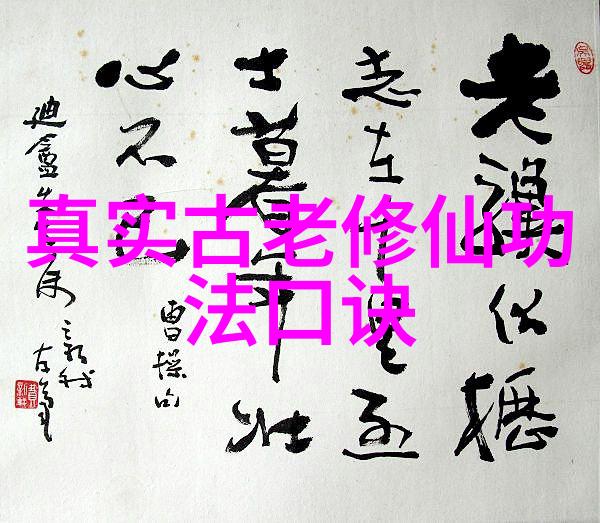 真实古老修仙功
法口诀
老驥伏櫪
志在千里烈
士暮年壮
心不已
曹操句
迪盦